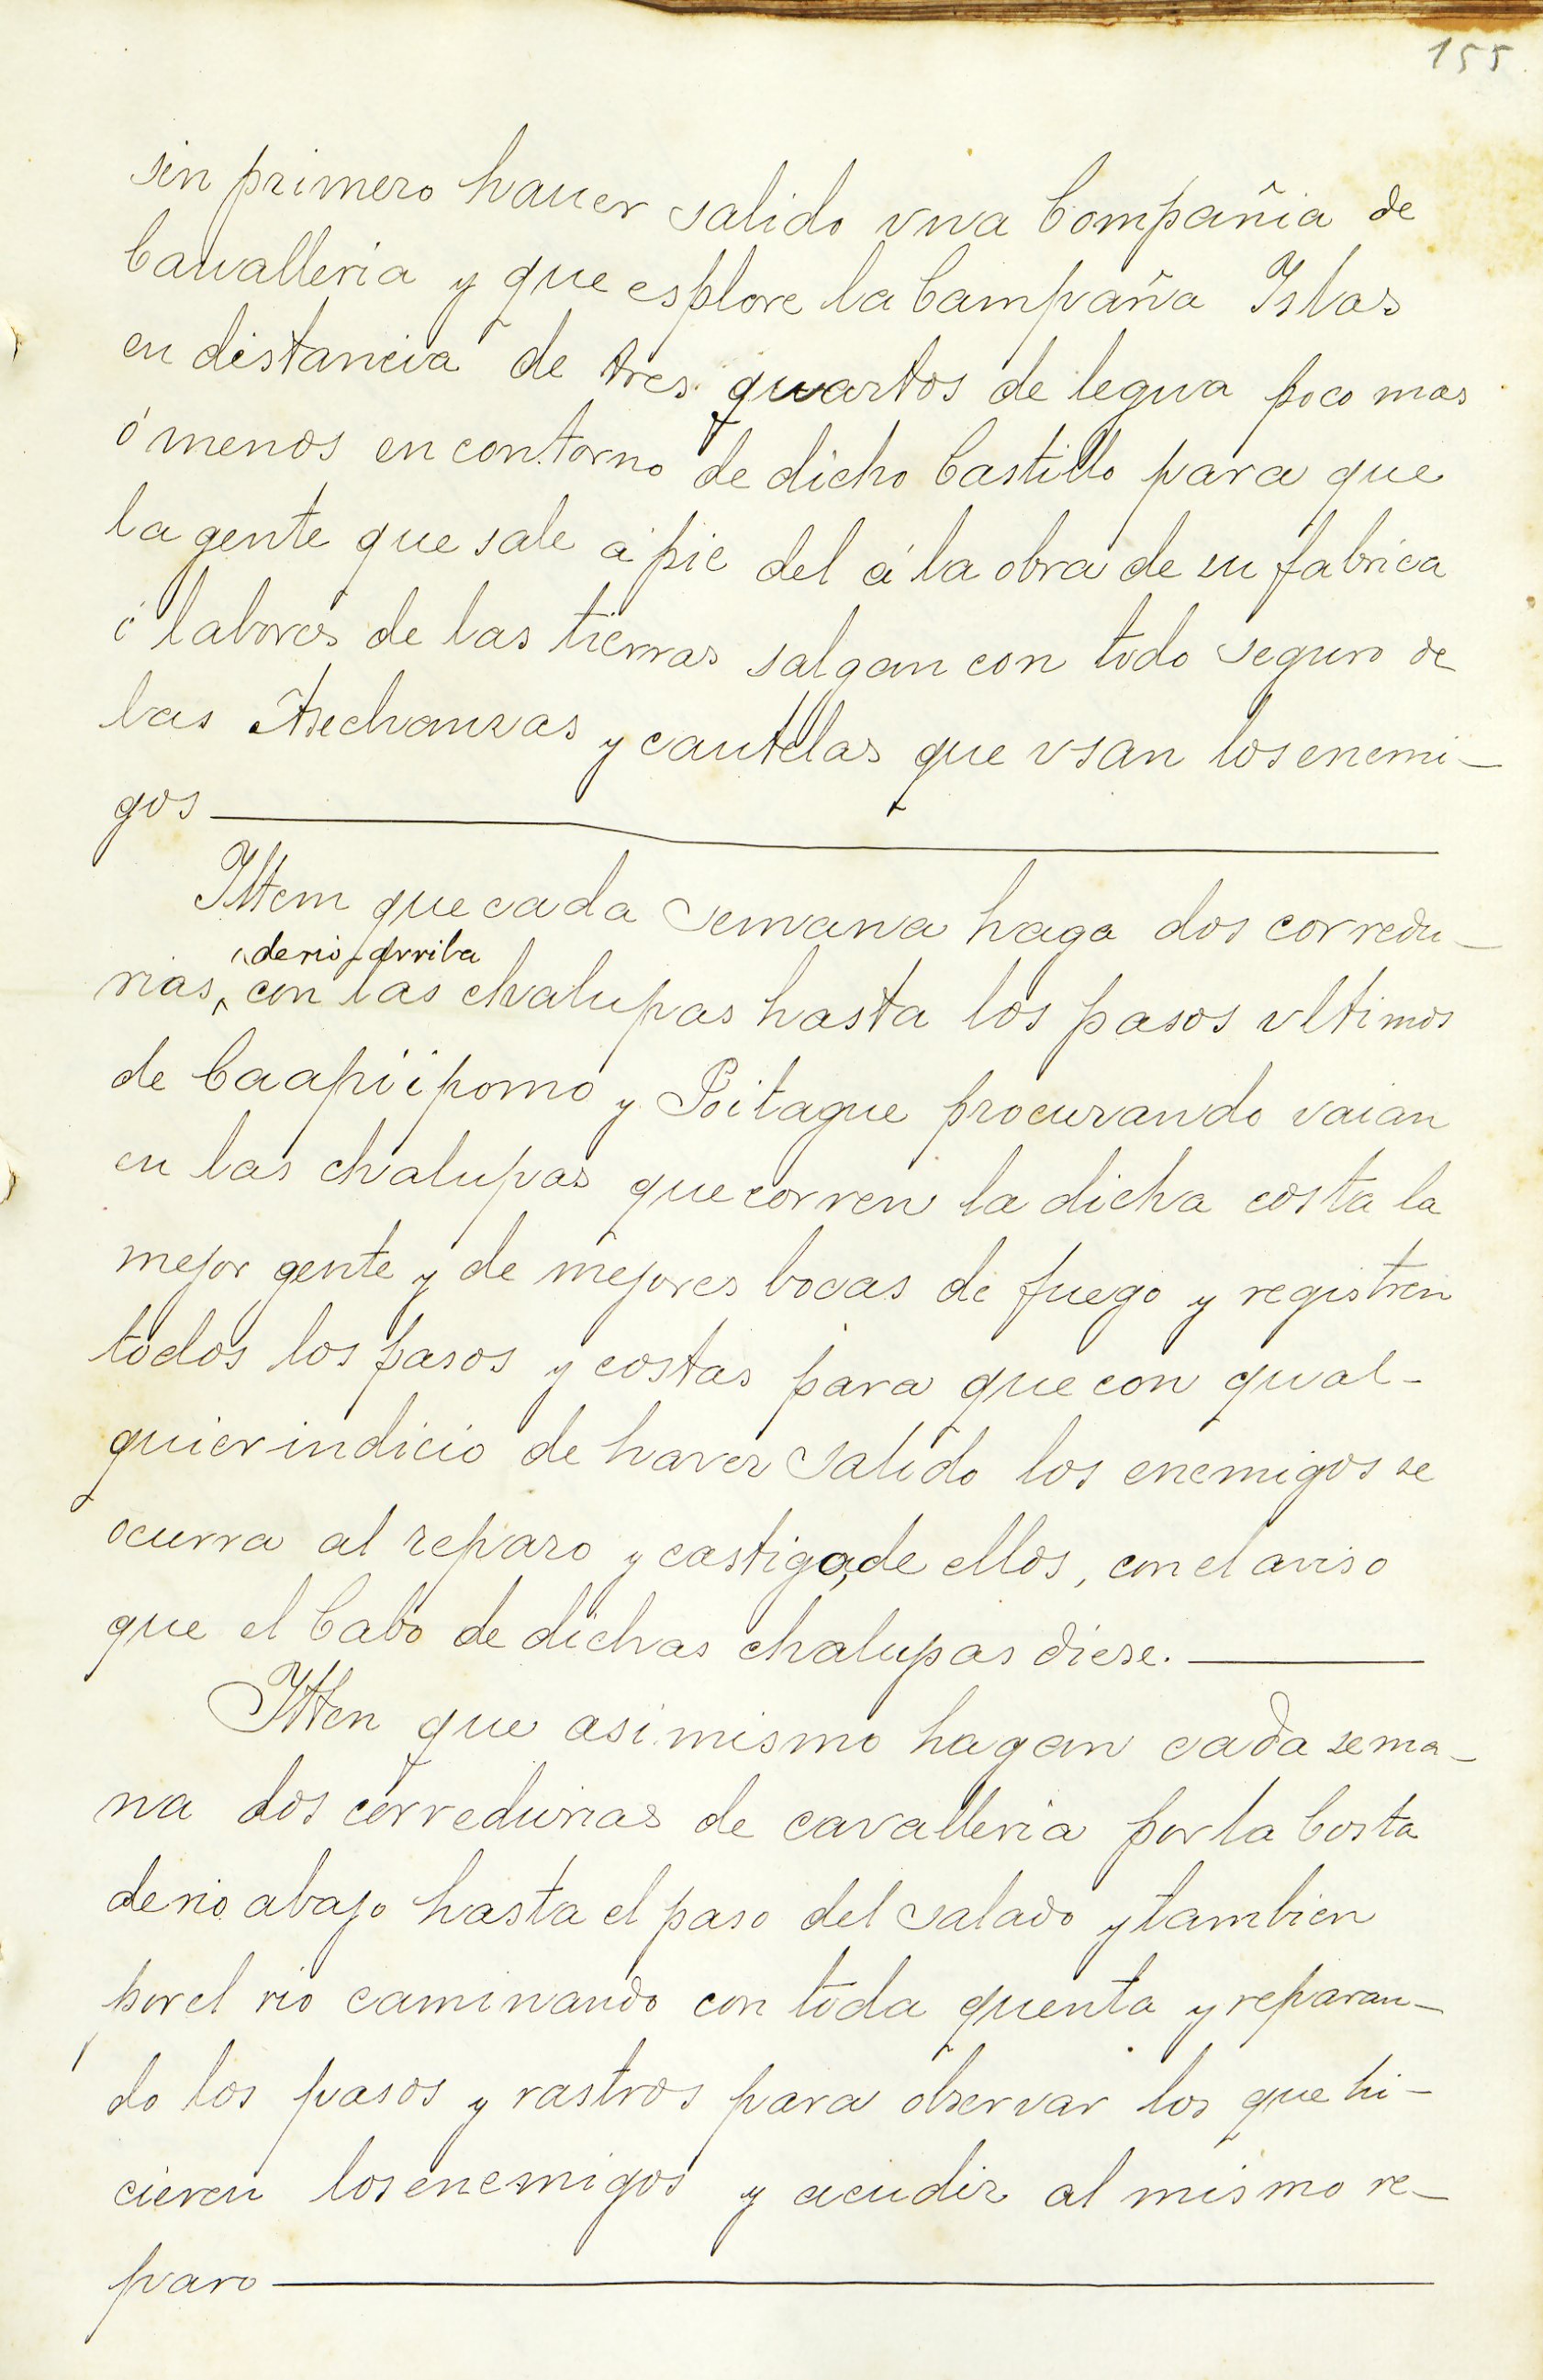 155
sin primero hauer salido vna Compañia de
Cauvalleria y que esplore la Campaña Islas
en distancia de tres quartos de legua poco mas
ó menos en contorno de dicho Castillo para que
la gente que sale a pie del á la obra de su fabrica
ó labores de las tierras salgan con todo seguro de
las Asechanzas y cautelas que vsan los enemi-
gos
Ittem que cada semana haga dos corredu-
de rio arriba
rias, con las chalupas hasta los pasos vltimos
de Caapiipomo y Poitague procurando vaian
en las chalupas que corren la dicha costa la
mejor gente y de mejores bocas de fuego y registren
todos los pasos y costas para que con qual-
quier indicio de haver salido los enemigos se
ocurra al reparo y castigo, de ellos, con el aviso
que el Cabo de dichas chalupas diese.
Itten que asi mismo hagan cada sema-
na dos corredurias de cavalleria por la Costa
de rio abajo hasta el paso del salado y tambien
por el rio caminando con toda quenta y reparan-
do los pasos y rastros para observar los que hi-
cieren los enemigos y acudir al mismo re-
paro